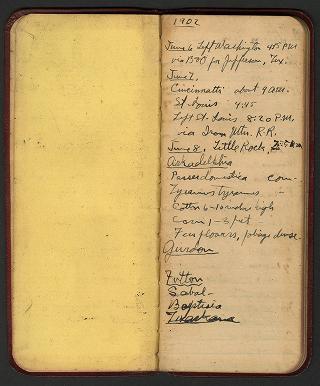 1902
June 6 Left Washington 4:15 P.M.
via B&O for Jefferson, Tex.
June 7.
Cincinnatti about 9 A.M.
St. Louis 4:45
Left St. Louis 8:20 P.M.
via Iron Mtn. R.R.
June 8. Little Rock,
Arkadelphia
Passer domestica com-
Tyrannus tyrannus -
Cotton 6-10 inches high
Corn 1-3 feet
Few flowers, foliage dense
Gurdon
Fulton
Sabal-
Baptisia
Texarkana